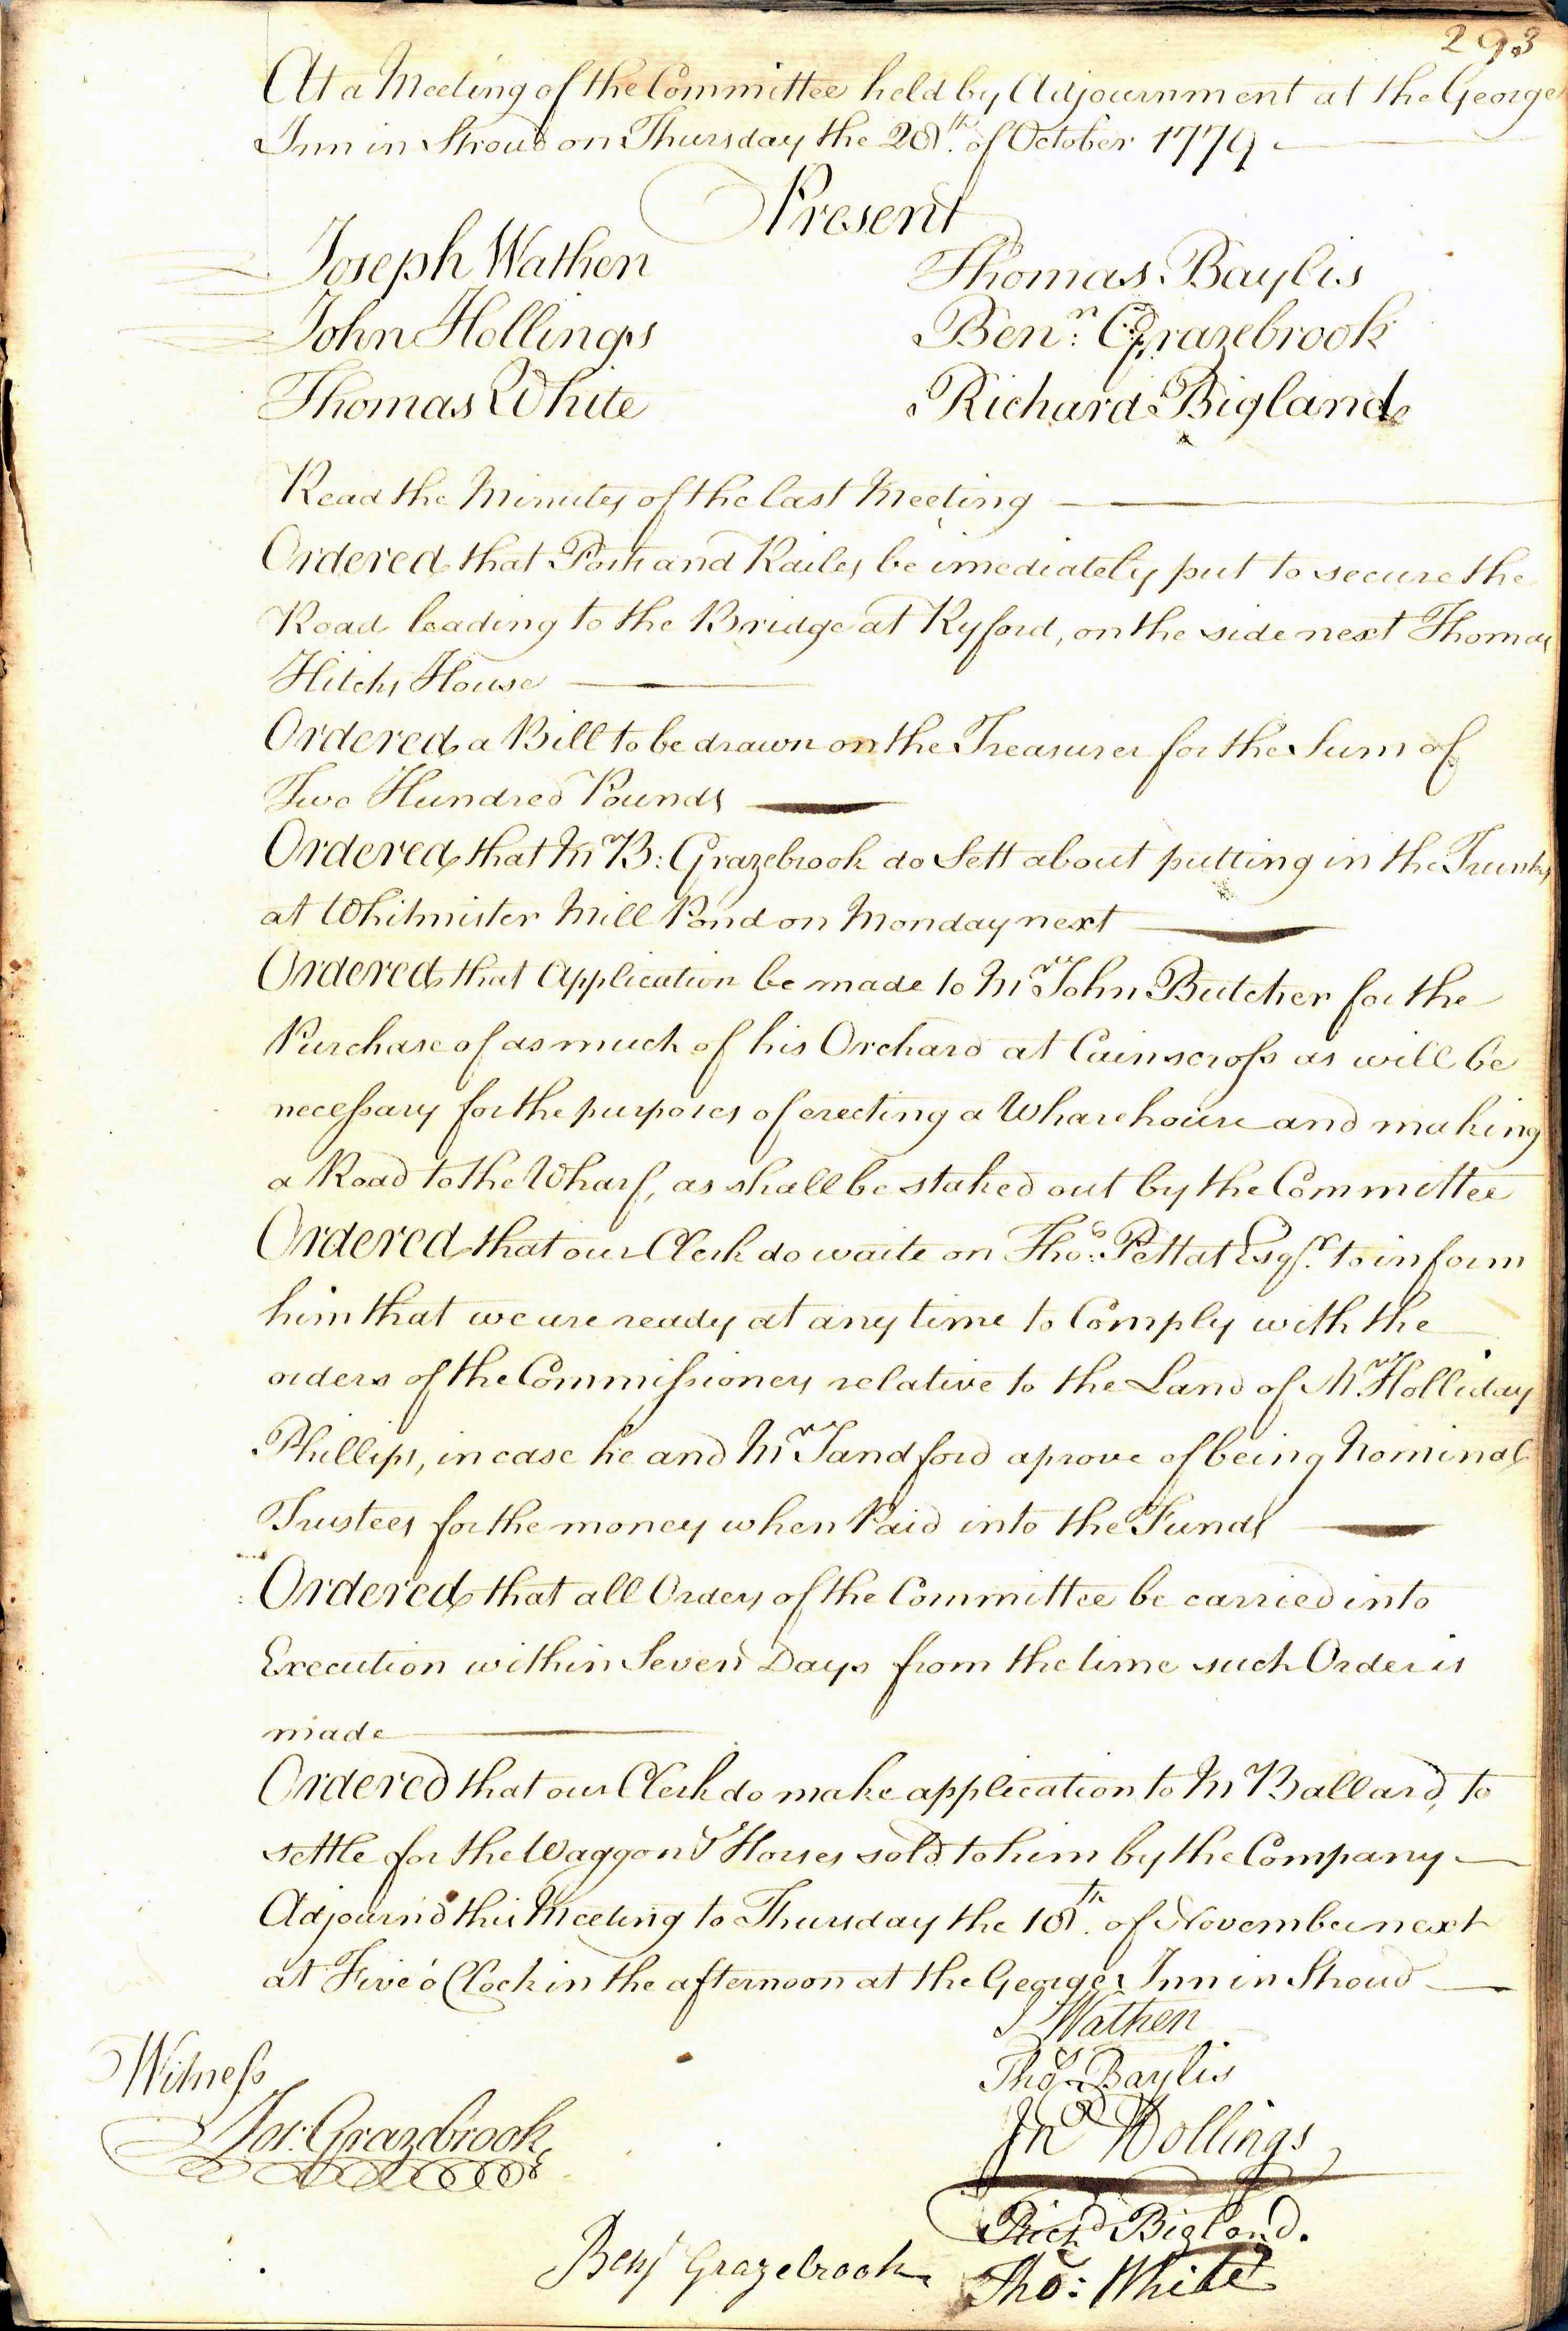 293
At a Meeting of the Committee held by Adjournment at the George
Inn in Stroud on Thursday the 28th. of October 1779
Present
Joseph Wathen Thomas Baylis
John Hollings Benn: Grazebrook
Thomas White Richard Bigland
Read the Minutes of the last Meeting
Ordered that Posts and Railes be imediately put to secure the
Road leading to the Bridge at Ryford, on the side next Thomas
Hitchs House
Ordered a Bill to be drawn on the Treasurer for the Sum of
Two Hundred Pounds
Ordered that Mr B: Grazebrook do Sett about putting in the Trunks
at Whitmister Mill Pond on Monday next
Ordered that Application be made to Mr John Butcher for the
Purchase of as much of his Orchard at Cainscross as will be
necessary for the purposes of erecting a Wharehouse and making
a Road to the Wharf, as shall be staked out by the Committee
Ordered that our Clerk do waite on Thos: Pettat Esqr. to inform
him that we are ready at any time to Comply with the
orders of the Commissioners relative to the Land of Mr Holliday
Phillips, in case he and Mr Sandford aprove of being Nominal
Trustees for the money when Paid into the Funds
Ordered that all Orders of the Committee be carried into
Execution within Seven Days from the time such Order is
made
Ordered that our Clerk do make application to Mr Ballard, to
settle for the Waggon & Horses sold to him by the Company
Adjourn'd this Meeting to Thursday the 18th. of November next
at Five o'Clock in the afternoon at the George Inn in Stroud
J Wathen
Witness
Thos Baylis
Jos: Grazebrook
Jno Hollings
Richd Bigland.
Benj Grazebrook
Tho: White